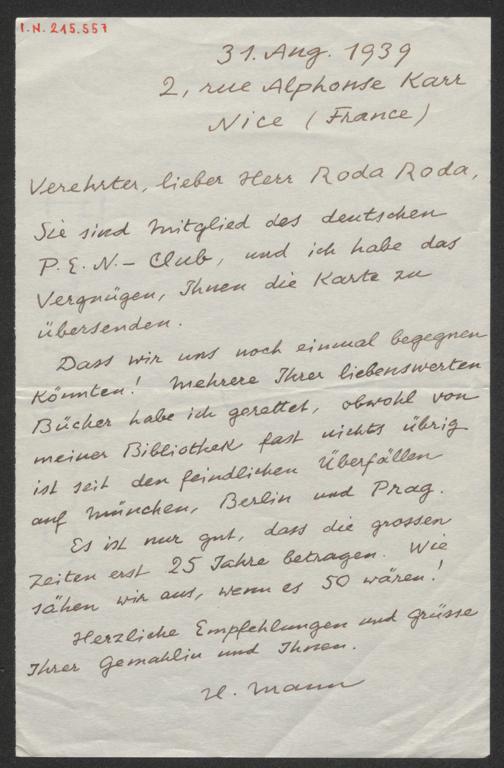 I.N. 215.557
31. Aug. 1939
2, rue Alphonse Karr
Nice (France)
Verehrter, lieber Herr Roda Roda,
Sie sind Mitglied des deutschen
P.E.N.-Club, und ich habe das
Vergnügen, Ihnen die Karte zu
übersenden.
Dass wir uns noch einmal begegnen
könnten! Mehrere Ihrer liebenswerten
Bücher habe ich gerettet, obwohl von
meiner Bibliothek fast nichts übrig
ist seit den feindlichen Überfällen
auf München, Berlin und Prag.
Es ist nur gut, dass die grossen
Zeiten erst 25 Jahre betragen. Wie
sähen wir aus, wenn es 50 wären!
Herzliche Empfehlungen und Grüsse
Ihrer Gemahlin und Ihnen.
H. Mann